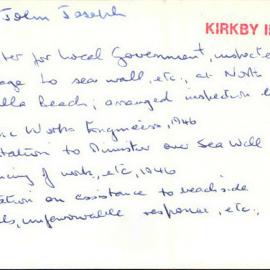 John Joseph
KIRKBY I
ter for Local Government, inspecte
age to sea wall, etc., at North
lla Beach; arranged inspection b
ic Works Engineers, 1946
tation to Minister over Sea Wall
ncing of work, etc, 1946
ation on assistance to beachside
ls, unfavourable response, etc.,